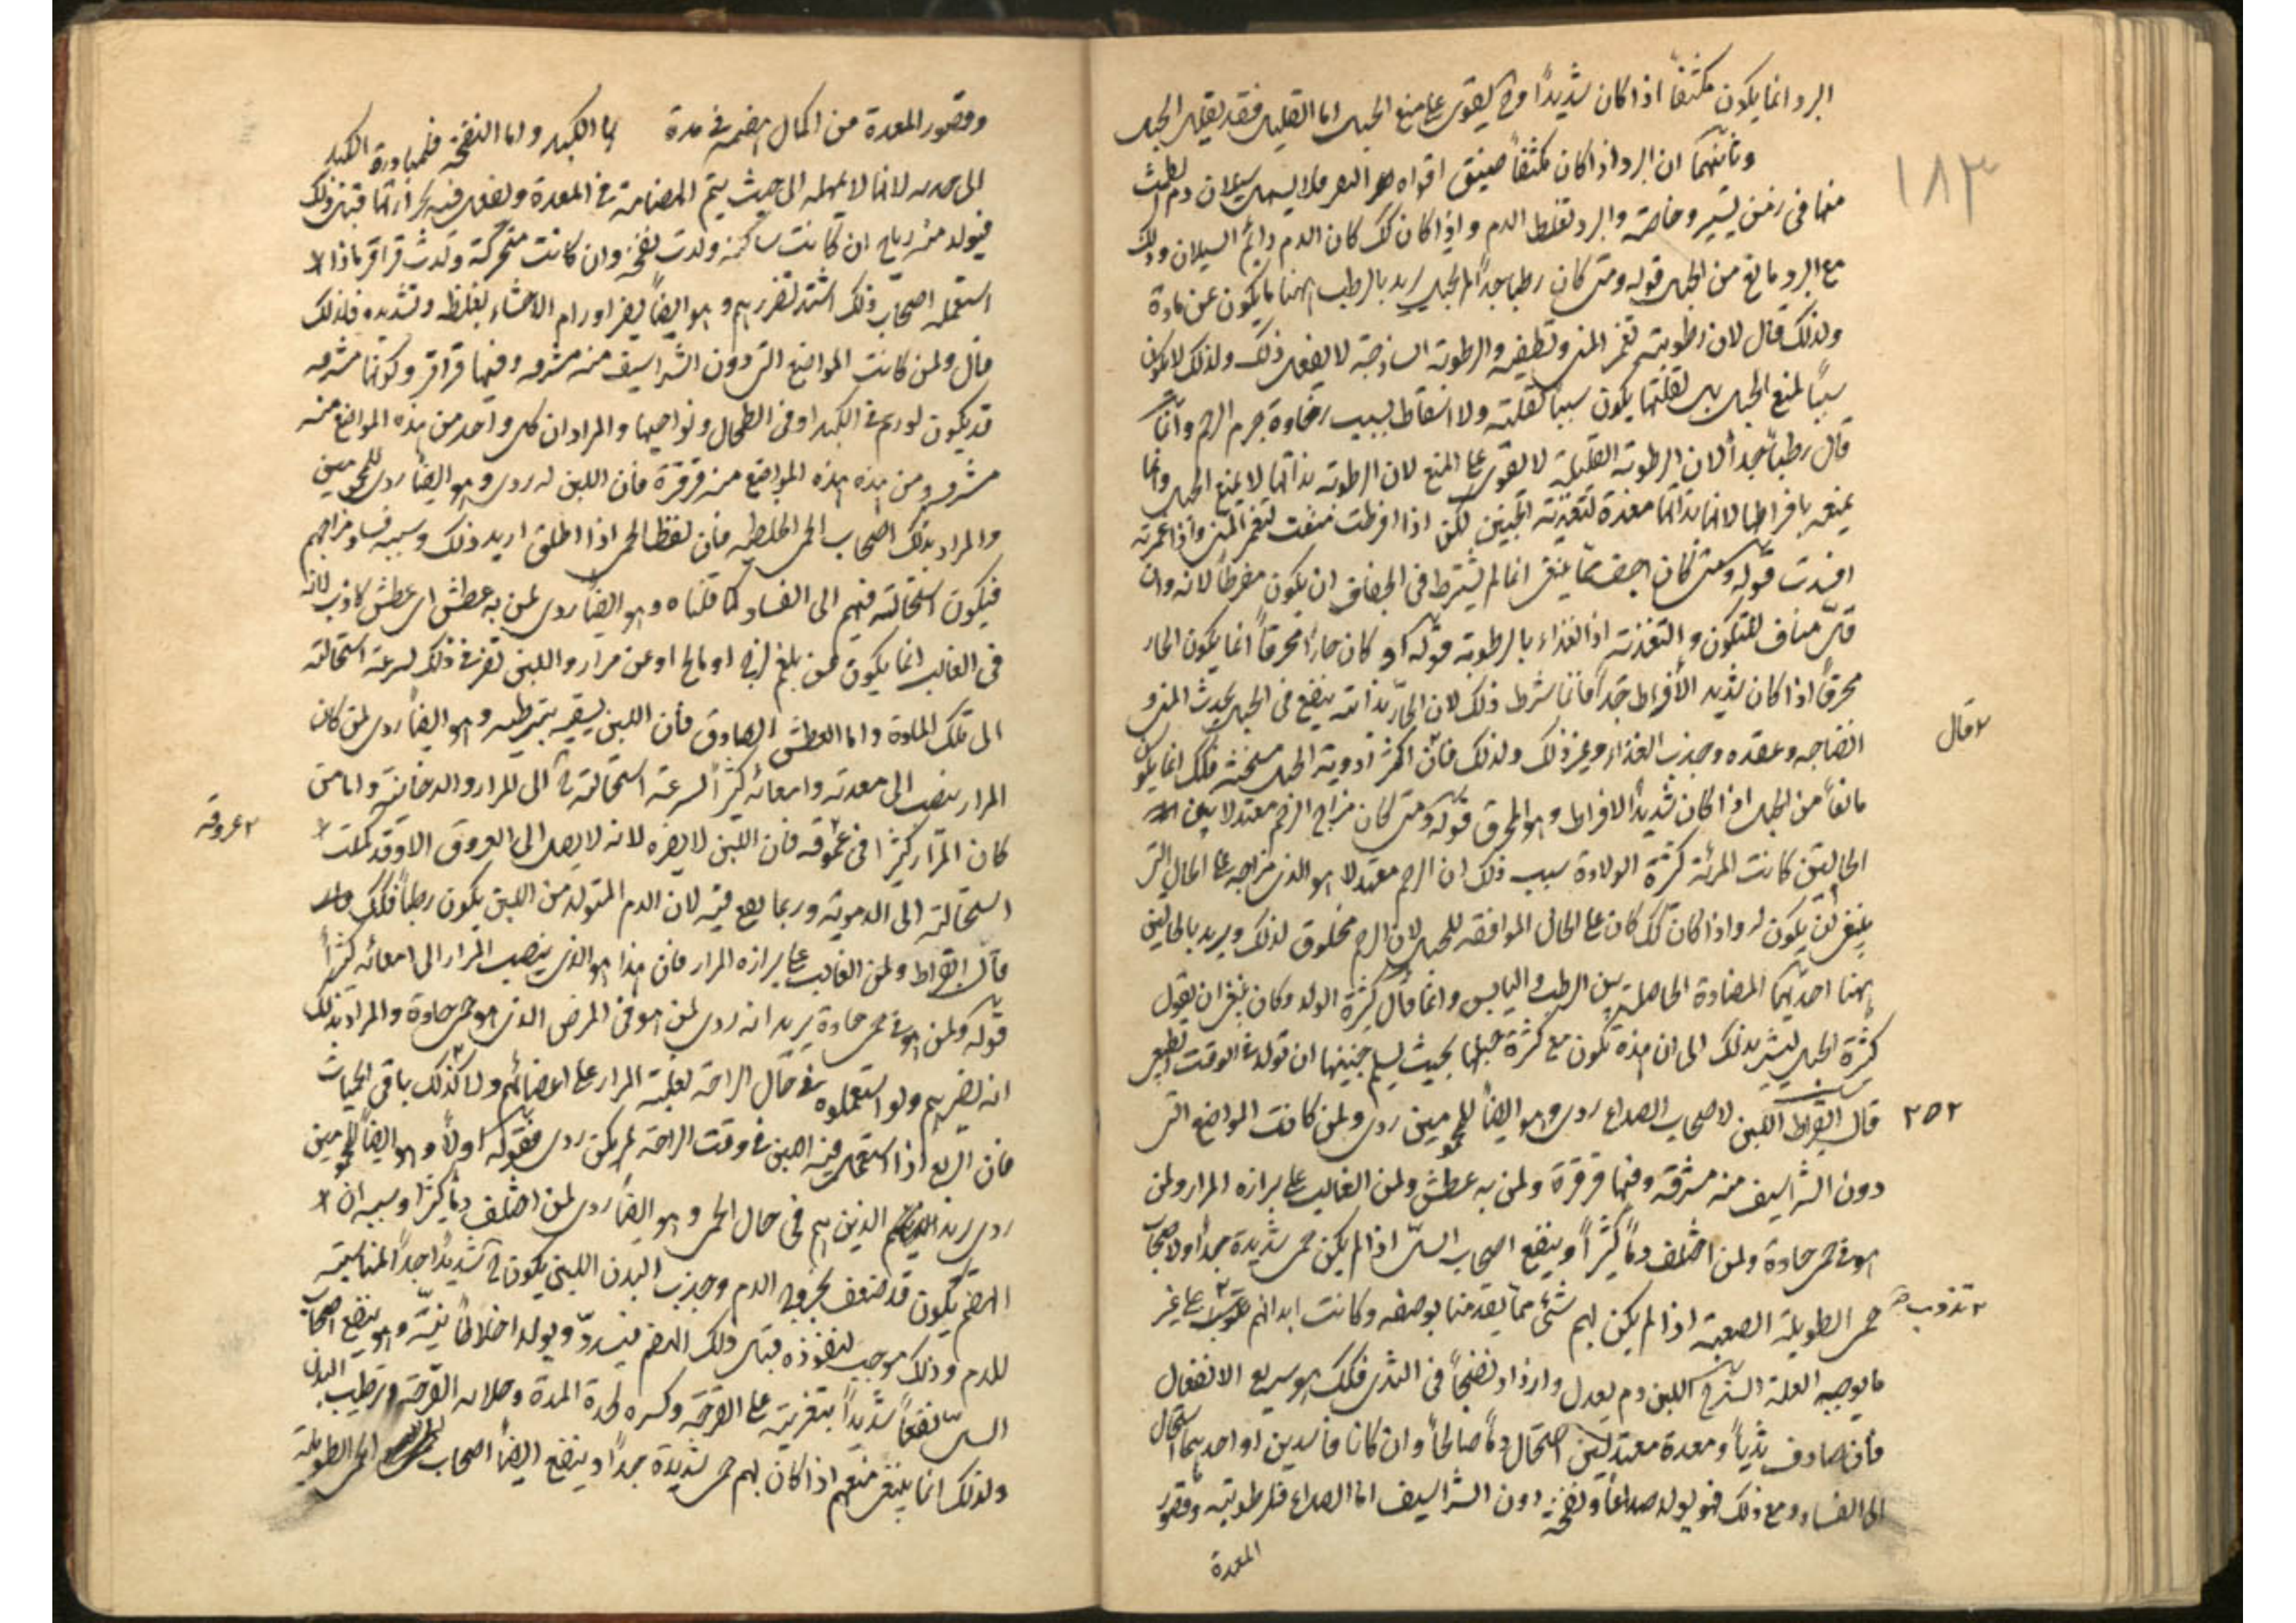 ١٨٣
البرد انما يكون مكثفاً اذا كان شديداً وح يقوى على منع الحبل اما القليل فقد يقلل الحبل
وثانيهما ان البرد اذا كان مكثفاً ضيق افواه فلا يسهل سيلان دم الطمث
منها فى زمن يسير وخاصة والبرد تغلظ الدم واذا كان كك كان الدم دايم السيلان وذلك
مع البرد مانع من الحبل قوله ومتى كان رطبا جداً لم تحبل يريد بالرطب ههنا ما يكون عن مادة
ولذلك قال لان رطوبته تغمر المنى وتطفيه والرطوبة الساذجة لا تفعل ذلك ولذلك لا يكون
سبباً لمنع الحبل بل لقلتها يكون سبباً لقلته ولا اسقاط بسبب رخاوة جرم الرحم وانما
قال رطباً جداً لان الرطوبة القليلة لا تقوى على المنع لان الرطوبة بذاتها لا يمنع الحبل وانما
يمنعه بافراطها لانها بذاتها معدة لتغذية الجنين لكن اذا افرطت منعت لتغمر المنى واذا غمرته
افسدت قوله ومتى كان اجف مما ينبغى انما لم يشترط فى الجفاف ان يكون مفرطاً لانه وان
قل مناف للتكون والتغذية اذ الغذاء بالرطوبة قوله او كان حاراً محرقاً انما يكون الحار
محرقاً اذا كان شديد الافراط جداً فانما شرط ذلك لان الحار بذاته ينفع فى الحبل بحدث المنى و
انضاجه وعقده وجذب الغذاء وغير ذلك ولذلك فان اكثر ادوية الحبل مسخنة فلك انما يكون
٢ قال
مانعاً من الحبل اذا كان شديد الافراط وهو المحرق قوله ومتى كان مزاج الرحم معتدلا بين
الحالين كانت المرئة كثيرة الولادة سبب ذلك ان الرحم معتدلا هو الذى مزاجه على الحال التى
ينبغى ان يكون له واذا كان كك كان على الحال الموافقة للحبل لان الرحم مخلوق لذلك ويريد بالحالين
ههنا احديهما المضادة الحاصلة بين الرطب واليابس وانما قال كثيرة الولد وكان ينبغى ان يقول
كثيرة الحبل ليشير بذلك الى ان هذه تكون مع كثرة حبلها بحيث يسلم جنينها ان تولد فى الوقت الطبيعى
٢٥٢
قال ابقراط اللبن لاصحاب الصداع ردى وهو ايضاً للمحمومين ردى ولمن كانت المواضع التى
دون الشراسيف منه مشرفة وفيها قرقرة ولمن به عطش ولمن الغالب على برازه المرار ولمن
هو فى حمى حادة ولمن اختلف دماً كثيراً وينفع اصحاب السل اذا لم يكن حمى شديدة جداً ولاصحاب
حمى الطويلة الصعبة اذا لم يكن بهم شئ مما تقدمنا بوصفه وكانت ابدانهم تذوب على غير
٢ تذوب
ما توجبه العلة الشرح اللبن دم يعدل وازداد نضجاً فى الثدى فلك هو سريع الانفعال
فان صادف بدناً ومعدة معتدلين استحال دماً صالحاً وان كانا فاسدين او احدهما استحال
الى الفساد ومع ذلك فهو يولد صداعاً ونفخة دون الشراسيف اما الصداع فلرطوبته وقصور
المعدة
وقصور المعدة من اكمال هضمه فى مدة الكبد واما النفخة فلمبادرة الكبد
الى جذبه لانها لا تمهله الى حيث يتم انهضامه فى المعدة وتفعل فيه بحرارتها قبل ذلك
فيولد منه رياح ان كانت ساكنة ولدت نفخة وان كانت متحركة ولدت قراقر فاذا
استعمله اصحاب ذلك اشتد تضررهم وهو ايضاً يضر اورام الاحشاء بغلظه وتشديده فلذلك
قال ولمن كانت المواضع التى دون الشراسيف منه مشرفه وفيها قراقر وكونها مشرفه
قد يكون لورم فى الكبد او فى الطحال ونواحيها والمراد ان كل واحد من هذه المواضع منه
مشرفه ومن هذه هذه المواضع منه قرقرة فان اللبن له ردى وهو ايضاً ردى للمحمومين
والمراد بذلك اصحاب الحمى الخلطية فان لفظ الحمى اذا اطلق اريد ذلك وسببه فساد مزاجهم
فيكون استحالته فيهم الى الفساد كما قلناه وهو ايضاً ردى لمن به عطش اى عطش كاذب لانه
فى الغالب انما يكون عن بلغم لزج او مالح او عن مرار واللبن يضر فى ذلك لسرعة استحالته
الى تلك المادة واما العطش الصادق فان اللبن يسقيه بترطيبه وهو ايضاً ردى لمن كان
المرار ينصب الى معدته وامعائه كثيراً لسرعة استحالته ح الى المرار والدخانية واما من
كان المرار كثيراً فى عروقه فان اللبن لا يضره لانه لا يصل الى العروق الا وقد كملت
٢ عروقه
استحالته الى الدموية وربما نفع فيه لان الدم المتولد من اللبن يكون رطباً فلك
قال ابقراط ولمن الغالب على برازه المرار فان هذا هو الذى ينصب المرار الى امعائه كثيراً
قوله ولمن هو فى حمى حادة يريد انه ردى لمن هو فى المرض الذى هو حمى حادة والمراد بذلك
انه يضرهم ولو استعملوه فى حال الراحة لغلبة المرار على اعضائهم ولا كذلك باقى الحميات
فان الربع اذا استعمل فيه اللبن فى وقت الراحة لم يكن ردى فقوله اولا وهو ايضاً للمحمومين
ردى يريد الذين هم فى حال الحمى وهو ايضاً ردى لمن اختلف دماً كثيراً وسببه ان
الهضم يكون قد ضعف بخروج الدم وجذب البدن اللبن يكون ح شديداً جداً لمناسبته
للدم وذلك موجب لنفوذه قبل ذلك الهضم فيسدد ويولد اخلاطاً نيّة وهو ينفع اصحاب
السل نفعاً شديداً بتغريته على القرحة وكسره لحدة المدة وجلائه القرحة وترطيب البدن
ولذلك انما ينبغى منعهم اذا كان بهم حمى شديدة جداً وينفع ايضاً اصحاب الحمى الطويلة